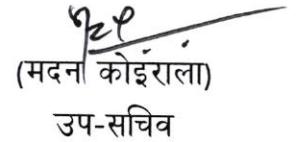 (मदन कोइराला)
उप-सचिव